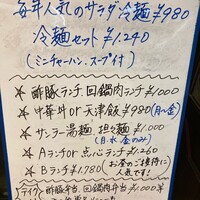 毎年人気のサラダ冷麺¥980
冷麺セット¥1.240
(ミニチャーハン、スープ付)
☆酢豚ランチ 回鍋肉ランチ¥1000
☆中華丼or天津飯¥980(月〜金)
☆サンラー湯麺、担々麺¥1.000
(月.水.金のみ)
☆Aランチor点心ランチ¥1.260
☆Bランチ¥1.780(お金のご接待に
人気です!)
テイク 酢豚弁当 回鍋肉弁当¥1000